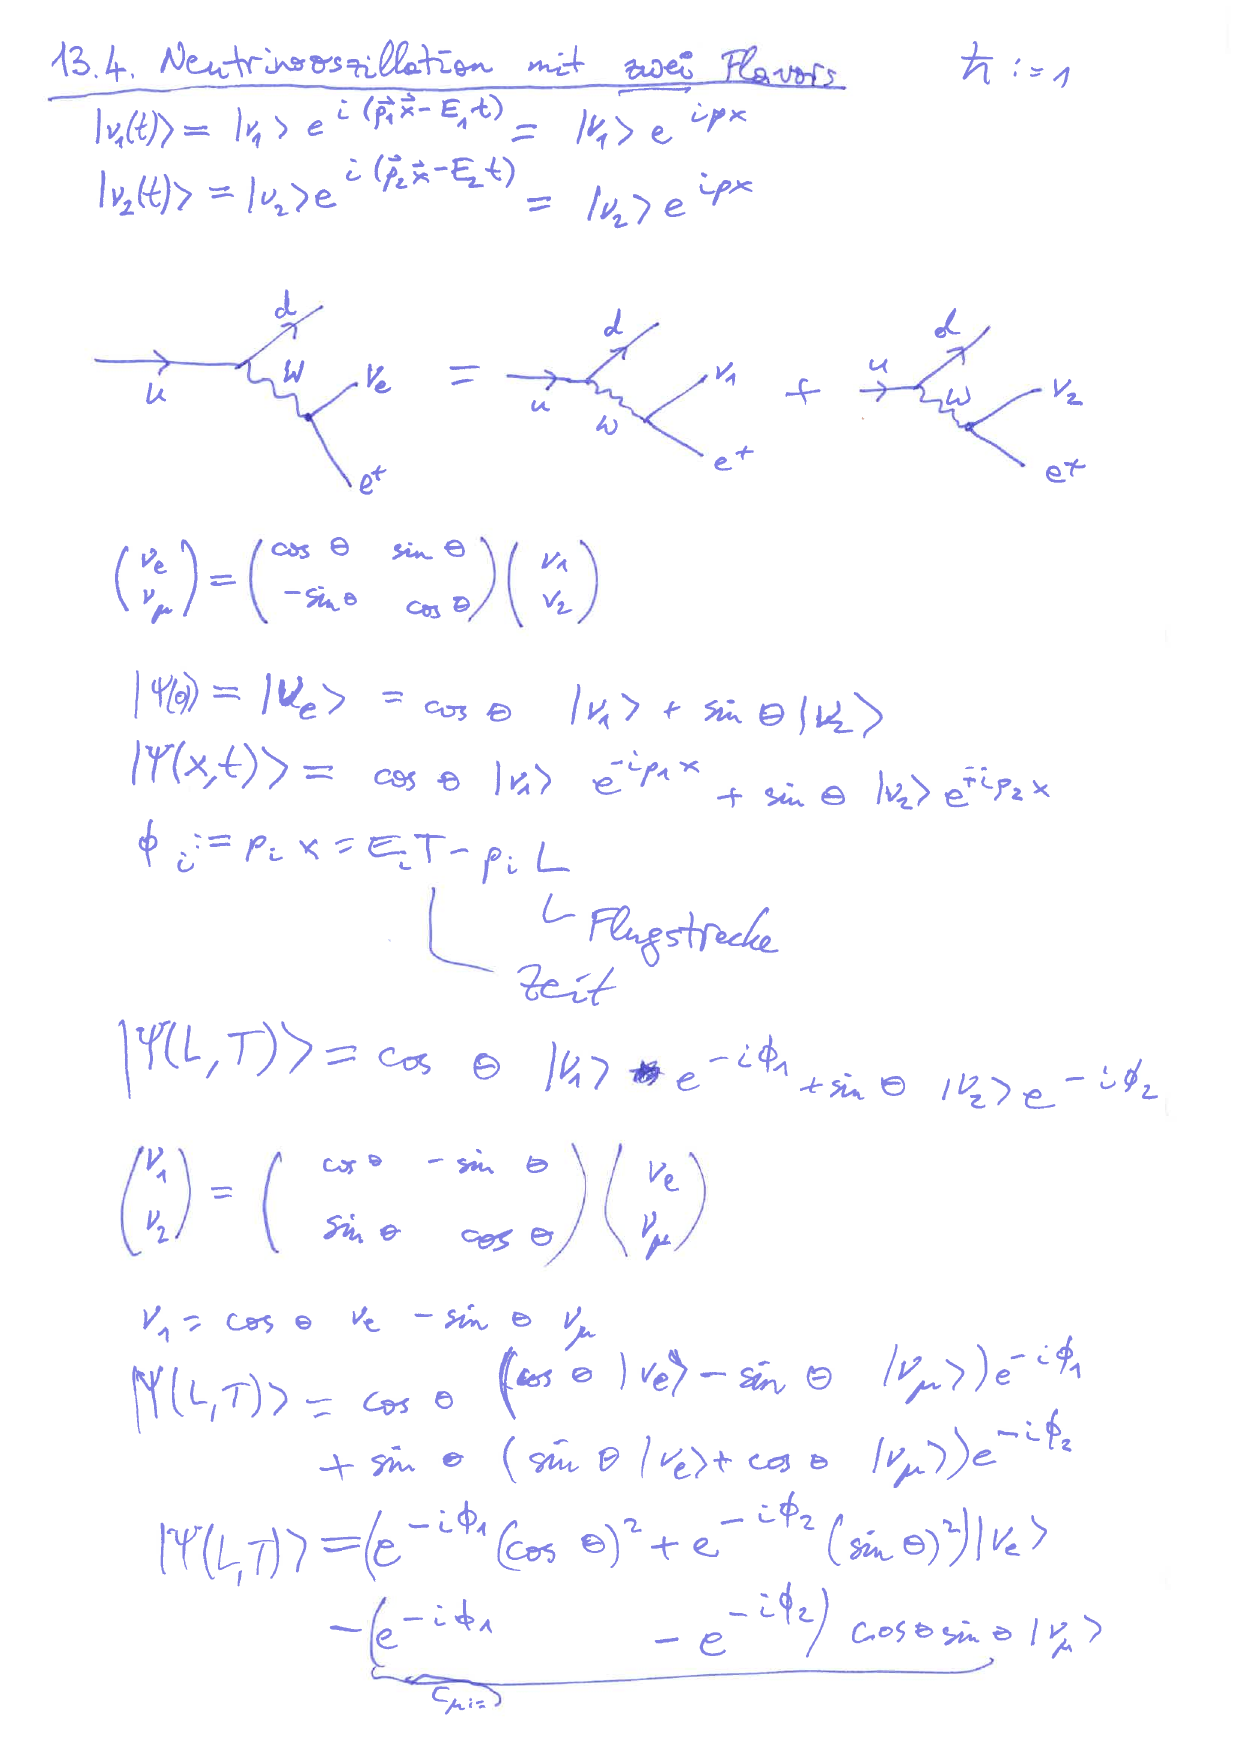 13.4. Neutrinooszillation mit zwei Flavors ℏ := 1
|ν₁(t)> = |ν₁> e^{i(p⃗₁x⃗ - E₁t)} = |ν₁> e^{ipx}
|ν₂(t)> = |ν₂> e^{i(p⃗₂x⃗ - E₂t)} = |ν₂> e^{ipx}
u d W νe e⁺ = u d W ν₁ e⁺ + u d W ν₂ e⁺
(νe νμ) = (cos θ sin θ -sin θ cos θ) (ν₁ ν₂)
|Ψ(0)> = |νe> = cos θ |ν₁> + sin θ |ν₂>
|Ψ(x,t)> = cos θ |ν₁> e^{-ip₁x} + sin θ |ν₂> e^{-ip₂x}
ϕᵢ := pᵢ x = EᵢT - pᵢ L
Flugstrecke
Zeit
|Ψ(L,T)> = cos θ |ν₁> e^{-iϕ₁} + sin θ |ν₂> e^{-iϕ₂}
(ν₁ ν₂) = (cos θ - sin θ sin θ cos θ) (νe νμ)
ν₁ = cos θ νe - sin θ νμ
|Ψ(L,T)> = cos θ (cos θ |νe> - sin θ |νμ>) e^{-iϕ₁}
+ sin θ (sin θ |νe> + cos θ |νμ>) e^{-iϕ₂}
|Ψ(L,T)> = (e^{-iϕ₁} (cos θ)² + e^{-iϕ₂} (sin θ)²) |νe>
- (e^{-iϕ₁} - e^{-iϕ₂}) cos θ sin θ |νμ>
cμ :=